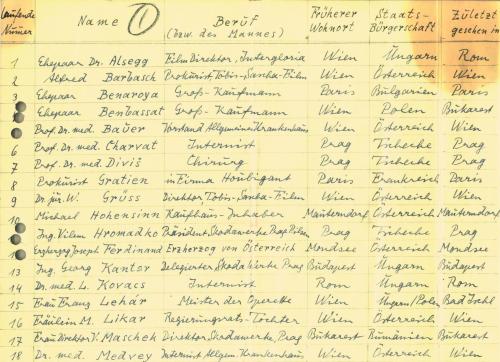 Laufende Numer Name ① Beruf (bzw. des Mannes) Früherer Wohnort Staats-Bürgerschaft Zuletzt gesehen in
1 Ehepaar Dr. Alsegg Film Direktor, Intergloria Wien Ungarn Rom
2 Alfred Barbasch Prokurist, Tobis-Sascha-Film Wien Österreich Wien
3 Ehepaar Benaroya Groß-Kaufmann Paris Bulgarien Paris
Ehepaar Benbassat Groß-Kaufmann Wien Polen Bukarest
Prof. Dr. med. Bauer Vorstand Allgemeine Krankenhaus Wien Österreich Wien
6 Prof. Dr. med. Charvat Internist Prag Tscheche Prag
7 Prof. Dr. med. Diviš Chirurg Prag Tscheche Prag
8 Prokurist Gratien in Firma Houbigant Paris Frankreich Paris
9 Dr. jur. W. Grüss Direktor, Tobis-Sascha-Film Wien Österreich Wien
10 Michael Hohensinn Kaufhaus-Inhaber Mauterndorf Österreich Mauterndorf
Ing. Vilem Hromadko Präsident Skodawerke, Prag, Pilsen Prag Tscheche Prag
Erzherzog Joseph Ferdinand Erzherzog von Österreich Mondsee Österreich Mondsee
13 Ing. Georg Kantor Delegierter Skoda Werke, Prag Budapest Ungarn Budapest
14 Dr. med. L. Kovacs Internist Rom Ungarn Rom
15 Frau Franz Lehár Meister der Operette Wien Ungarn/Polen Bad Ischl
16 Fräulein M. Likar Regierungsrats-Tochter Wien Österreich Wien
17 Frau Direktor V. Maschek Direktor Skodawerke, Prag Bukarest Rumänien Bukarest
18 Dr. med. Medvey Internist Allgem. Krankenhaus Wien Österreich Wien